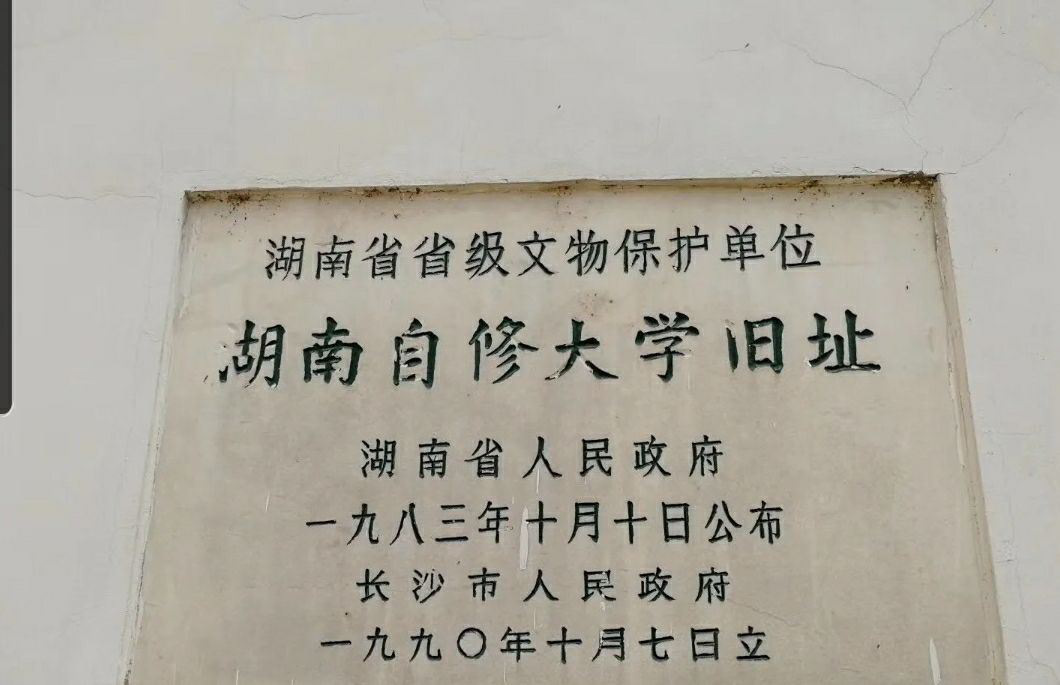 湖南省省级文物保护单位
湖南自修大学旧址
湖南省人民政府
一九八三年十月十日公布
长沙市人民政府
一九九〇年十月七日立